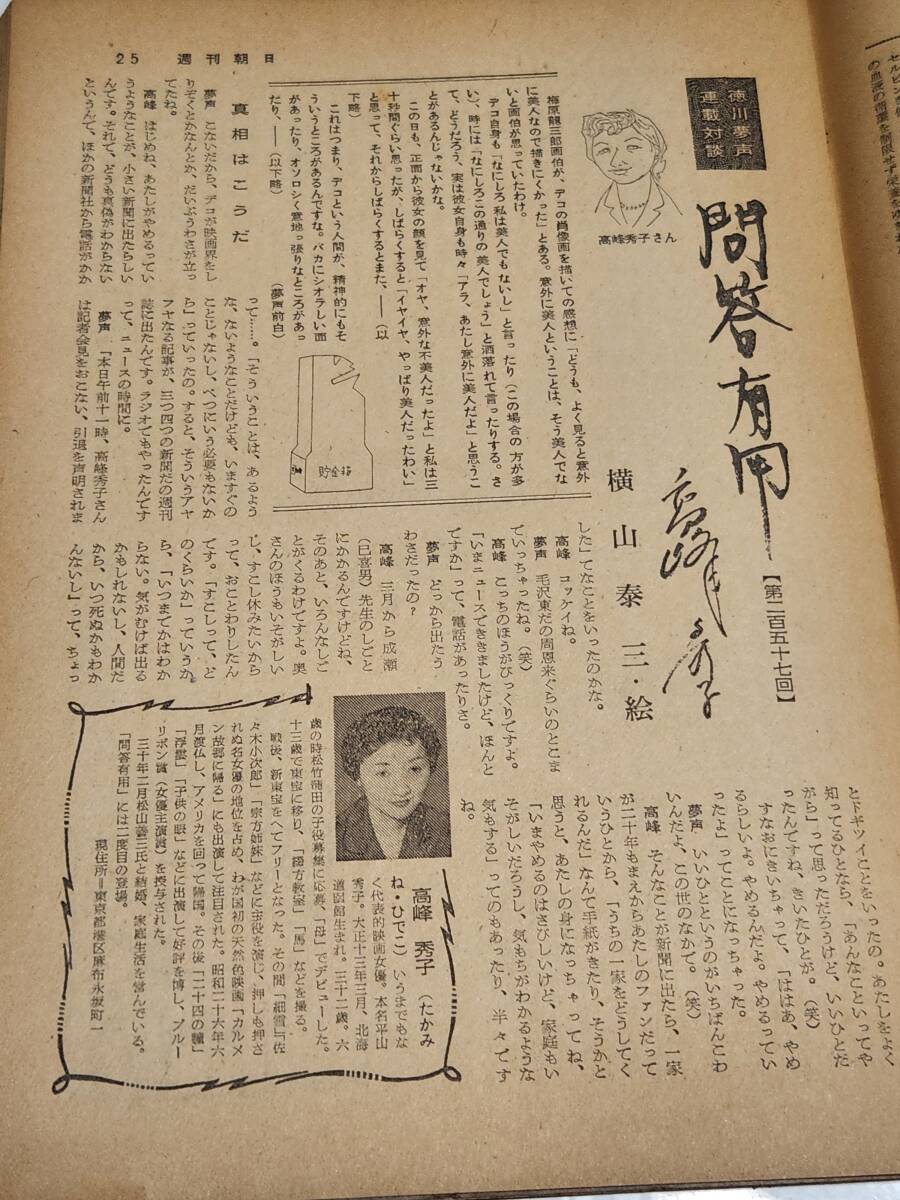 25　週刊朝日
徳川夢声
連載対談
問答有用
【第二百五十七回】
高峰秀子
横山泰三・絵
高峰秀子さん
梅原龍三郎画伯が、デコの肖像画を描いての感想に「どうも、よく見ると意外
に美人なので描きにくかった」とある。意外に美人ということは、そう美人でな
いと画伯が思っていたわけ。
デコ自身も「なにしろ私は美人でもないし」と言ったり（この場合の方が多
い）、時には「なにしろこの通りの美人でしょう」と洒落れて言ったりする。さ
て、どうだろう、実は彼女自身も時々「アラ、あたし意外に美人だよ」と思うこ
とがあるんじゃないかな。
この日も、正面から彼女の顔を見て「オヤ、意外な不美人だったよ」と私は三
十秒間ぐらい思ったが、しばらくすると「イヤイヤ、やっぱり美人だったわい」
と思って、それからしばらくするとまた、――（以
下略）
これはつまり、デコという人間が、精神的にもそ
ういうところがあるんですな。バカにシオラしい面
があったり、オソロシく意地っ張りなところがあっ
たり、――（以下略）
（夢声前白）
貯金箱
真相はこうだ
夢声　こないだから、デコが映画界をし
りぞくとかなんとか、だいぶうわさが立っ
てたね。
高峰　はじめね、あたしがやめるってい
うようなことが、小さい新聞に出たらしい
んです。それで、どうも真偽がわからない
というんで、ほかの新聞社から電話がかか
って……。「そういうことは、あるよう
な、ないようなことだけども、いますぐの
ことじゃないし、べつにいう必要もないか
ら」っていったの。すると、そういうアヤ
フヤなる記事が、三つ四つの新聞だの週刊
誌に出たんです。ラジオでもやったんです
って、ニュースの時間に。
夢声　「本日午前十一時、高峰秀子さん
は記者会見をおこない、引退を声明されま
した」てなことをいったのかな。
高峰　コッケイね。
夢声　毛沢東だの周恩来ぐらいのとこま
でいっちゃったね。（笑）
高峰　こっちのほうがびっくりですよ。
「いまニュースでききましたけど、ほんと
ですか」って、電話があったりさ。
夢声　どっから出たう
わさだったの？
高峰　三月から成瀬
（巳喜男）先生のしごと
にかかるんですけどね、
そのあと、いろんなしご
とがくるわけですよ。奥
さんのほうもいそがしい
し、すこし休みたいから
って、おことわりしたん
です。「すこしって、ど
のくらいか」っていうか
ら、「いつまでかはわか
らない。気がむけば出る
かもしれないし、人間だ
から、いつ死ぬかもわか
んないし」って、ちょっ
とドギツイことをいったの。あたしをよく
知ってるひとなら、「あんなこといってや
がら」って思っただろうけど、いいひとだ
ったんですね、きいたひとが。（笑）
すなおにきいちゃって、「ははあ、やめ
るらしいよ。やめるんだよ。やめるってい
ったよ」ってことになっちゃった。
夢声　いいひとというのがいちばんこわ
いんだよ、この世のなかで。（笑）
高峰　そんなことが新聞に出たら、一家
が二十年もまえからあたしのファンだって
いうひとから、「うちの一家をどうしてく
れるんだ」なんて手紙がきたり、そうかと
思うと、あたしの身になっちゃってね、
「いまやめるのはさびしいけど、家庭もい
そがしいだろうし、気もちがわかるような
気もする」ってのもあったり、半々です
ね。
高峰　秀子　（たかみ
ね・ひでこ）　いうまでもな
く代表的映画女優。本名平山
秀子。大正十三年三月、北海
道函館生まれ。三十二歳。六
歳の時松竹蒲田の子役募集に応募、「母」でデビューした。
十三歳で東宝に移り、「綴方教室」「馬」などを撮る。
戦後、新東宝をへてフリーとなった。その間「細雪」「佐
々木小次郎」「宗方姉妹」などに主役を演じ、押しも押さ
れぬ名女優の地位を占め、わが国初の天然色映画「カルメ
ン故郷に帰る」にも出演して注目された。昭和二十六年六
月渡仏し、アメリカを回って帰国。その後「二十四の瞳」
「浮雲」「子供の眼」などに出演して好評を博し、ブルー
リボン賞（女優主演賞）を授与された。
三十年二月松山善三氏と結婚、家庭生活を営んでいる。
「問答有用」には二度目の登場。
現住所＝東京都港区麻布永坂町一